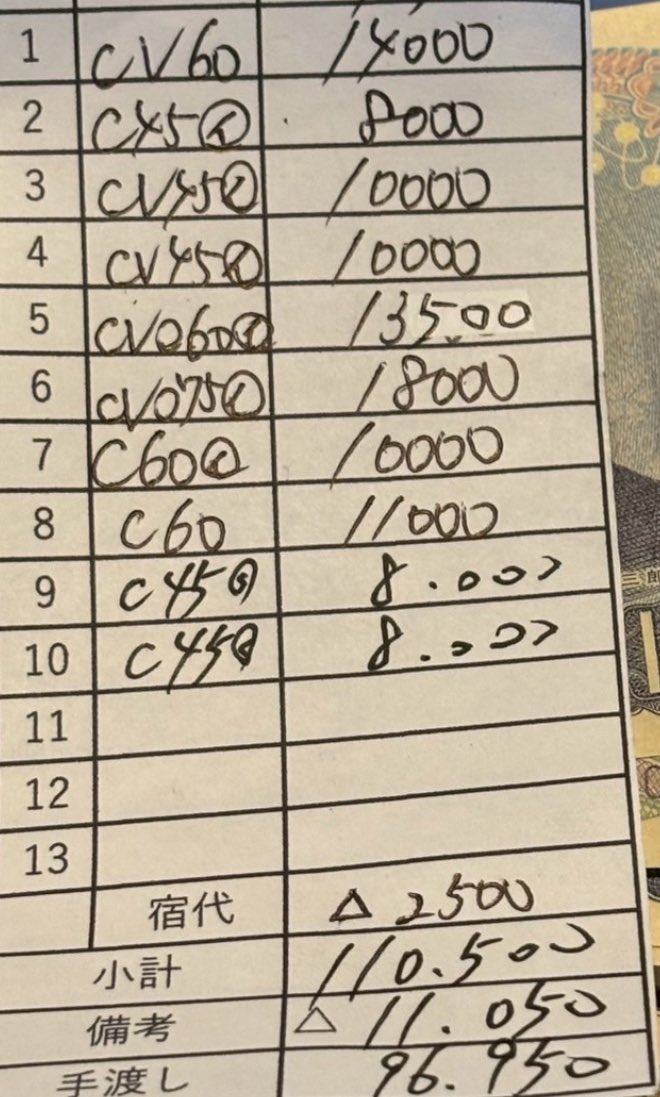 1 CV60 14000
2 C45 8000
3 CV45 10000
4 CV45 10000
5 CV060 13500
6 CV075 18000
7 C60 10000
8 C60 11000
9 C45 8.000
10 C45 8.000
11
12
13
宿代 △ 2500
小計 110.500
備考 △ 11.050
手渡し 96.950